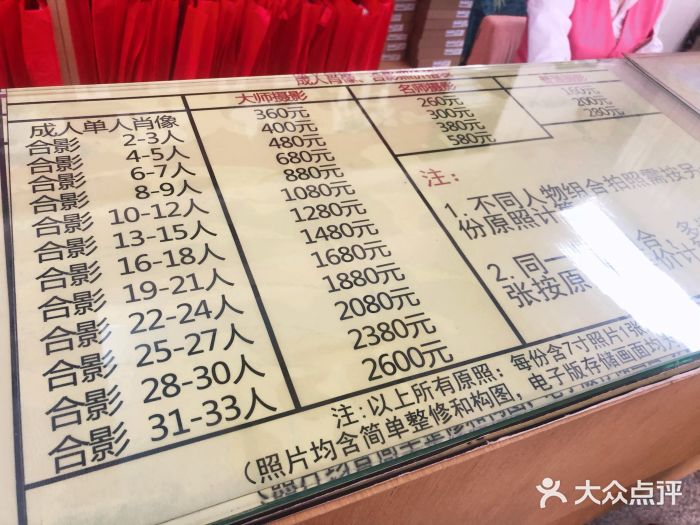 成人肖像、合影照价目表
大师摄影 名师摄影
成人单人肖像 360元 260元 160元
合影 2-3人 400元 300元 200元
合影 4-5人 480元 380元 280元
合影 6-7人 680元 580元
合影 8-9人 880元
合影 10-12人 1080元
合影 13-15人 1280元
合影 16-18人 1480元
合影 19-21人 1680元
合影 22-24人 1880元
合影 25-27人 2080元
合影 28-30人 2380元
合影 31-33人 2600元
注：
1. 不同人物组合拍照需按另
份原照计
2. 同一 合、多
张按原 价计
注:以上所有原照：每份含7寸照片1张
(照片均含简单整修和构图，电子版存储画面均为
大众点评